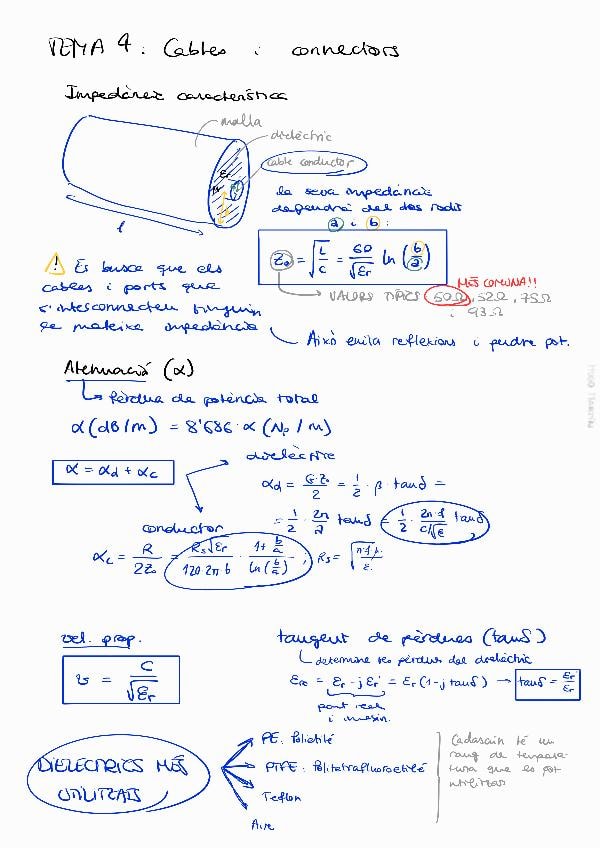 TEMA 4: Cables i connectors
Impedància característica
malla
dielèctric
cable conductor
εr
l
la seva impedància
dependrà del dos radis
a i b:
Z₀ = √(L/C) = 60/√εr ln(b/a)
⚠ Es busca que els
cables i ports que
s'interconnecten tinguin
la mateixa impedància
MÉS COMUNA!!
VALORS TÍPICS 50Ω, 52Ω, 75Ω
i 93Ω
Això evita reflexions i perdre pot.
Atenuació (α)
Pèrdua de potència total
α(dB/m) = 8'686·α(Np/m)
α = αd + αc
dielèctric
αd = G·Z₀/2 = 1/2 · β · tanδ =
= 1/2 · 2π/λ tanδ = 1/2 · 2π·f/(c/√ε) tanδ
conductor
αc = R/2Z₀ = Rs√εr/(120·2π b) · (1+ b/a)/ln(b/a) ; Rs =
vel. prop.
v = C/√εr
tangent de pèrdues (tanδ)
determina les pèrdues del dielèctric
εrc = εr - jεr' = εr(1-j tanδ) → tanδ = εr'/εr
part real
i imagin.
DIELÈCTRICS MÉS
UTILITZATS
PE: Polietilè
PTFE: Politetrafluoroetilè
Teflon
Aire
Cadascún té un
rang de tempera-
tura que es pot
utilitzar